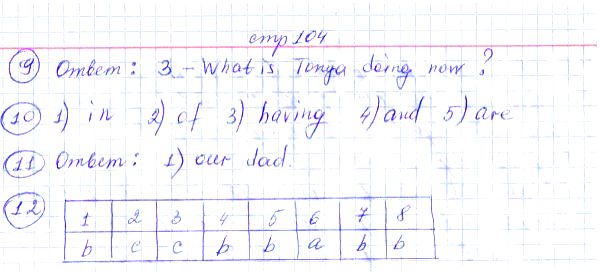 стр 104
9 Ответ: 3 - What is Tonya doing now?
10 1) in 2) of 3) having 4) and 5) are
11 Ответ: 1) our dad.
12
1 2 3 4 5 6 7 8
b c c b b a b b